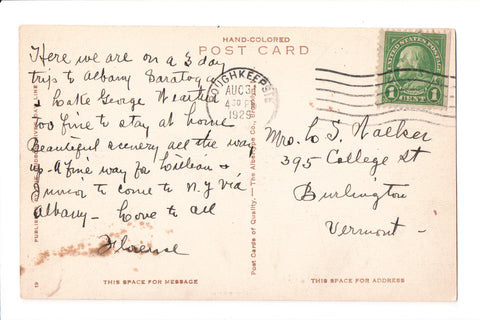 HAND-COLORED
POST CARD
Here we are on a 3 day
trip to Albany Saratoga
& Lake George
too fine to stay at home
Beautiful scenery all the way
up - A fine way for Lillian &
Junior to come to N.Y via
Albany - Love to all
Florence
POUGHKEEPSIE
AUG 31
4 PM
1929
UNITED STATES POSTAGE
1 CENT 1
Mrs. L S. Walker
395 College St
Burlington
Vermont -
Post Cards of Quality. — The Albertype Co., Brooklyn
THIS SPACE FOR MESSAGE
THIS SPACE FOR ADDRESS